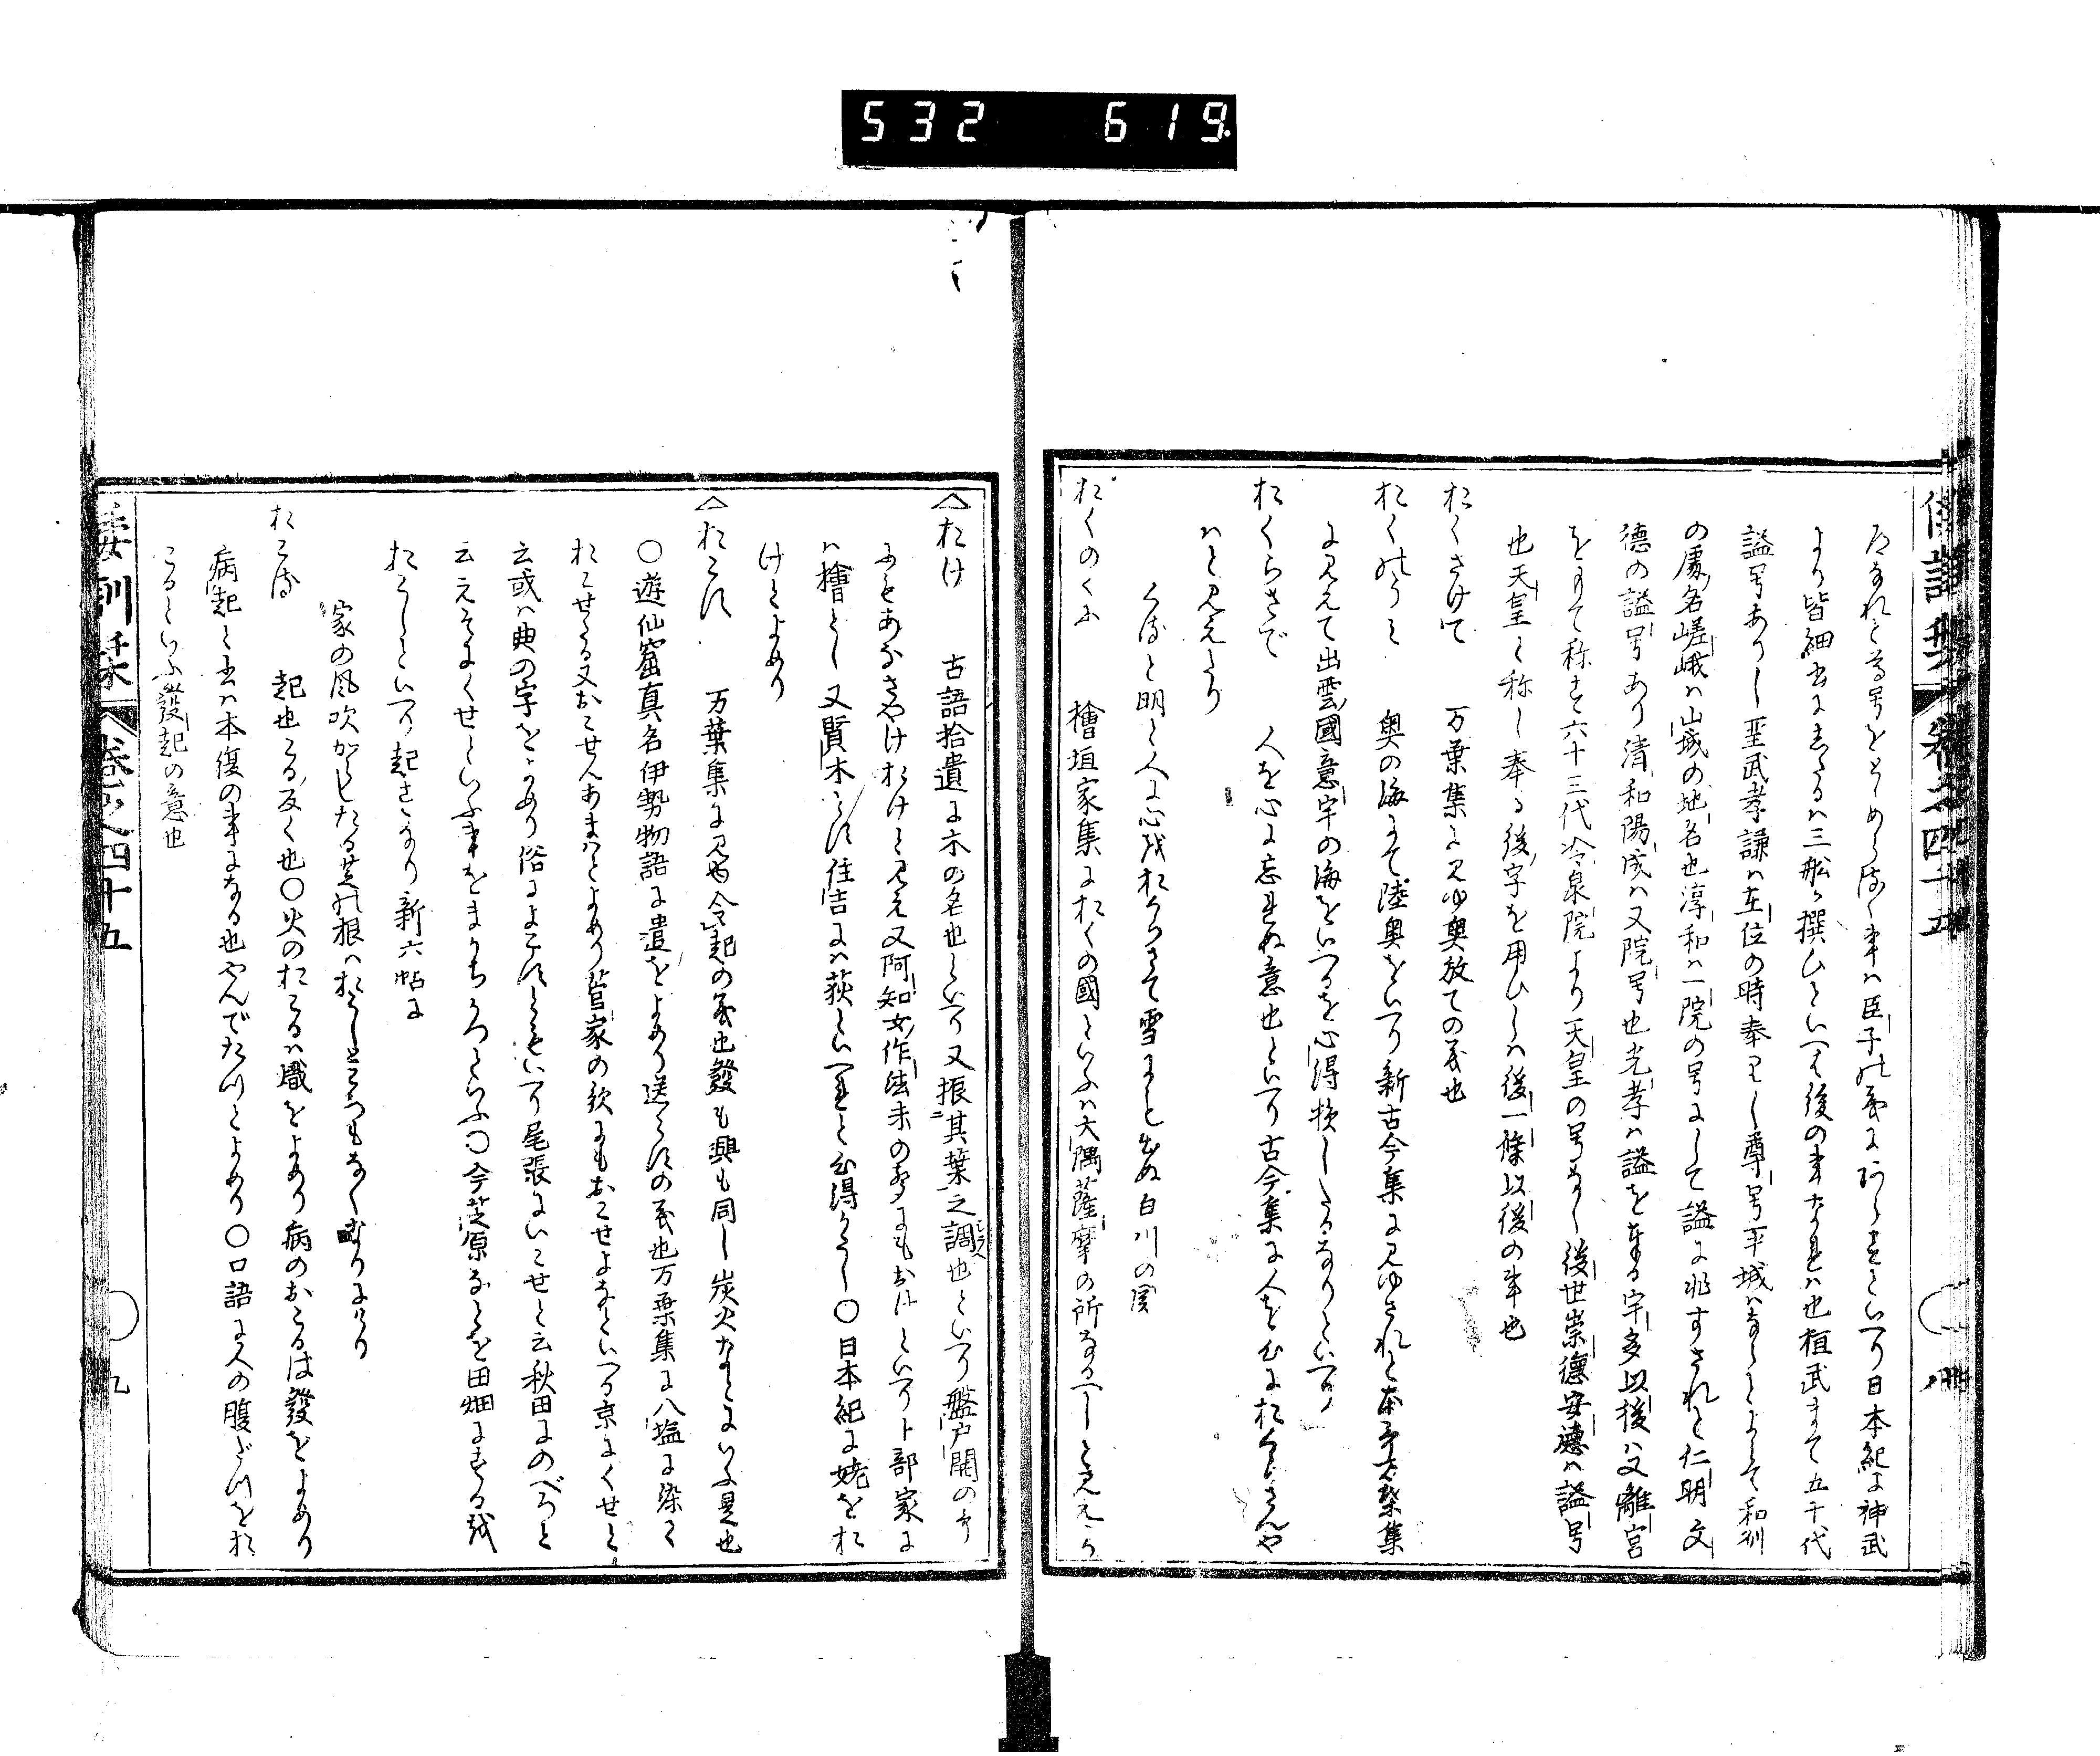 532 619
たなれと尊号をとゝめられし事は臣子の義にあらすといへり日本紀に神武
より皆細書にしたるは三船か撰ひといへは後の事なれは也桓武まて五十代
謚号ありし聖武孝謙は在位の時奉りし尊号平城はならとよみて和訓
の處名嵯峨は山城の地名也淳和は一院の号にして謚に非すされと仁明文
徳の謚号あり清和陽成は又院号也光孝は謚を奉る宇多以後は又離宮
をもて称せす六十三代冷泉院より天皇の号なし後世崇徳安徳は謚号
也天皇と称し奉る後字を用ひしは後一條以後の事也
おくさけて　万葉集に見ゆ奥放ての義也
おくのうみ　奥の海にて陸奥をいへり新古今集に見ゆされと
に見えて出雲國意宇の海をいへるを心得損したるなりといへり
おくらさで　人を心に忘れぬ意也といへり古今集に人を心におくらさんや
はと見えたり
雪にも出ぬ白川の関
おくのくに　檜垣家集におくの國といふは大隅薩摩の所なるへしと見えたり
倭訓栞　卷之四十五
△おけ　古語拾遺に木の名也といへり又振其葉之調也といへり盤戸開の
にもあなさやけおけと見え又阿知女作法末の歌にもおけといへり卜部家に
は檜とし又賢木とす住吉には荻といへれと心得かたし〇日本紀に姥をお
けとよめり
△おこす　万葉集に見ゆ令起の義也發も興も同し炭火なとにいふ是也
〇遊仙窟真名伊勢物語に遣をよめり送らすの義也万葉集に八塩に染て
おこせたる又おこせんあまはとよめり菅家の歌にもおこせよなといへり京にくせと
云或は典の字をよめり俗によこすともいへり尾張にいこせと云秋田にのべろと
云えそにくせといふ事をまかちかつといふ〇今芝原なとを田畑にする越
おこしといへり起さなり新六帖に
家の風吹からしたる芝の根はおこしところもなくなりにけり
おこる　起也こる反く也〇火のおこるは熾をよめり病のおこるは發をよめり
病起と書は本復の事になる也やんでたつとよめり〇口語に人の腹だつをお
こるといふ發起の意也
倭訓栞　卷之四十五　九